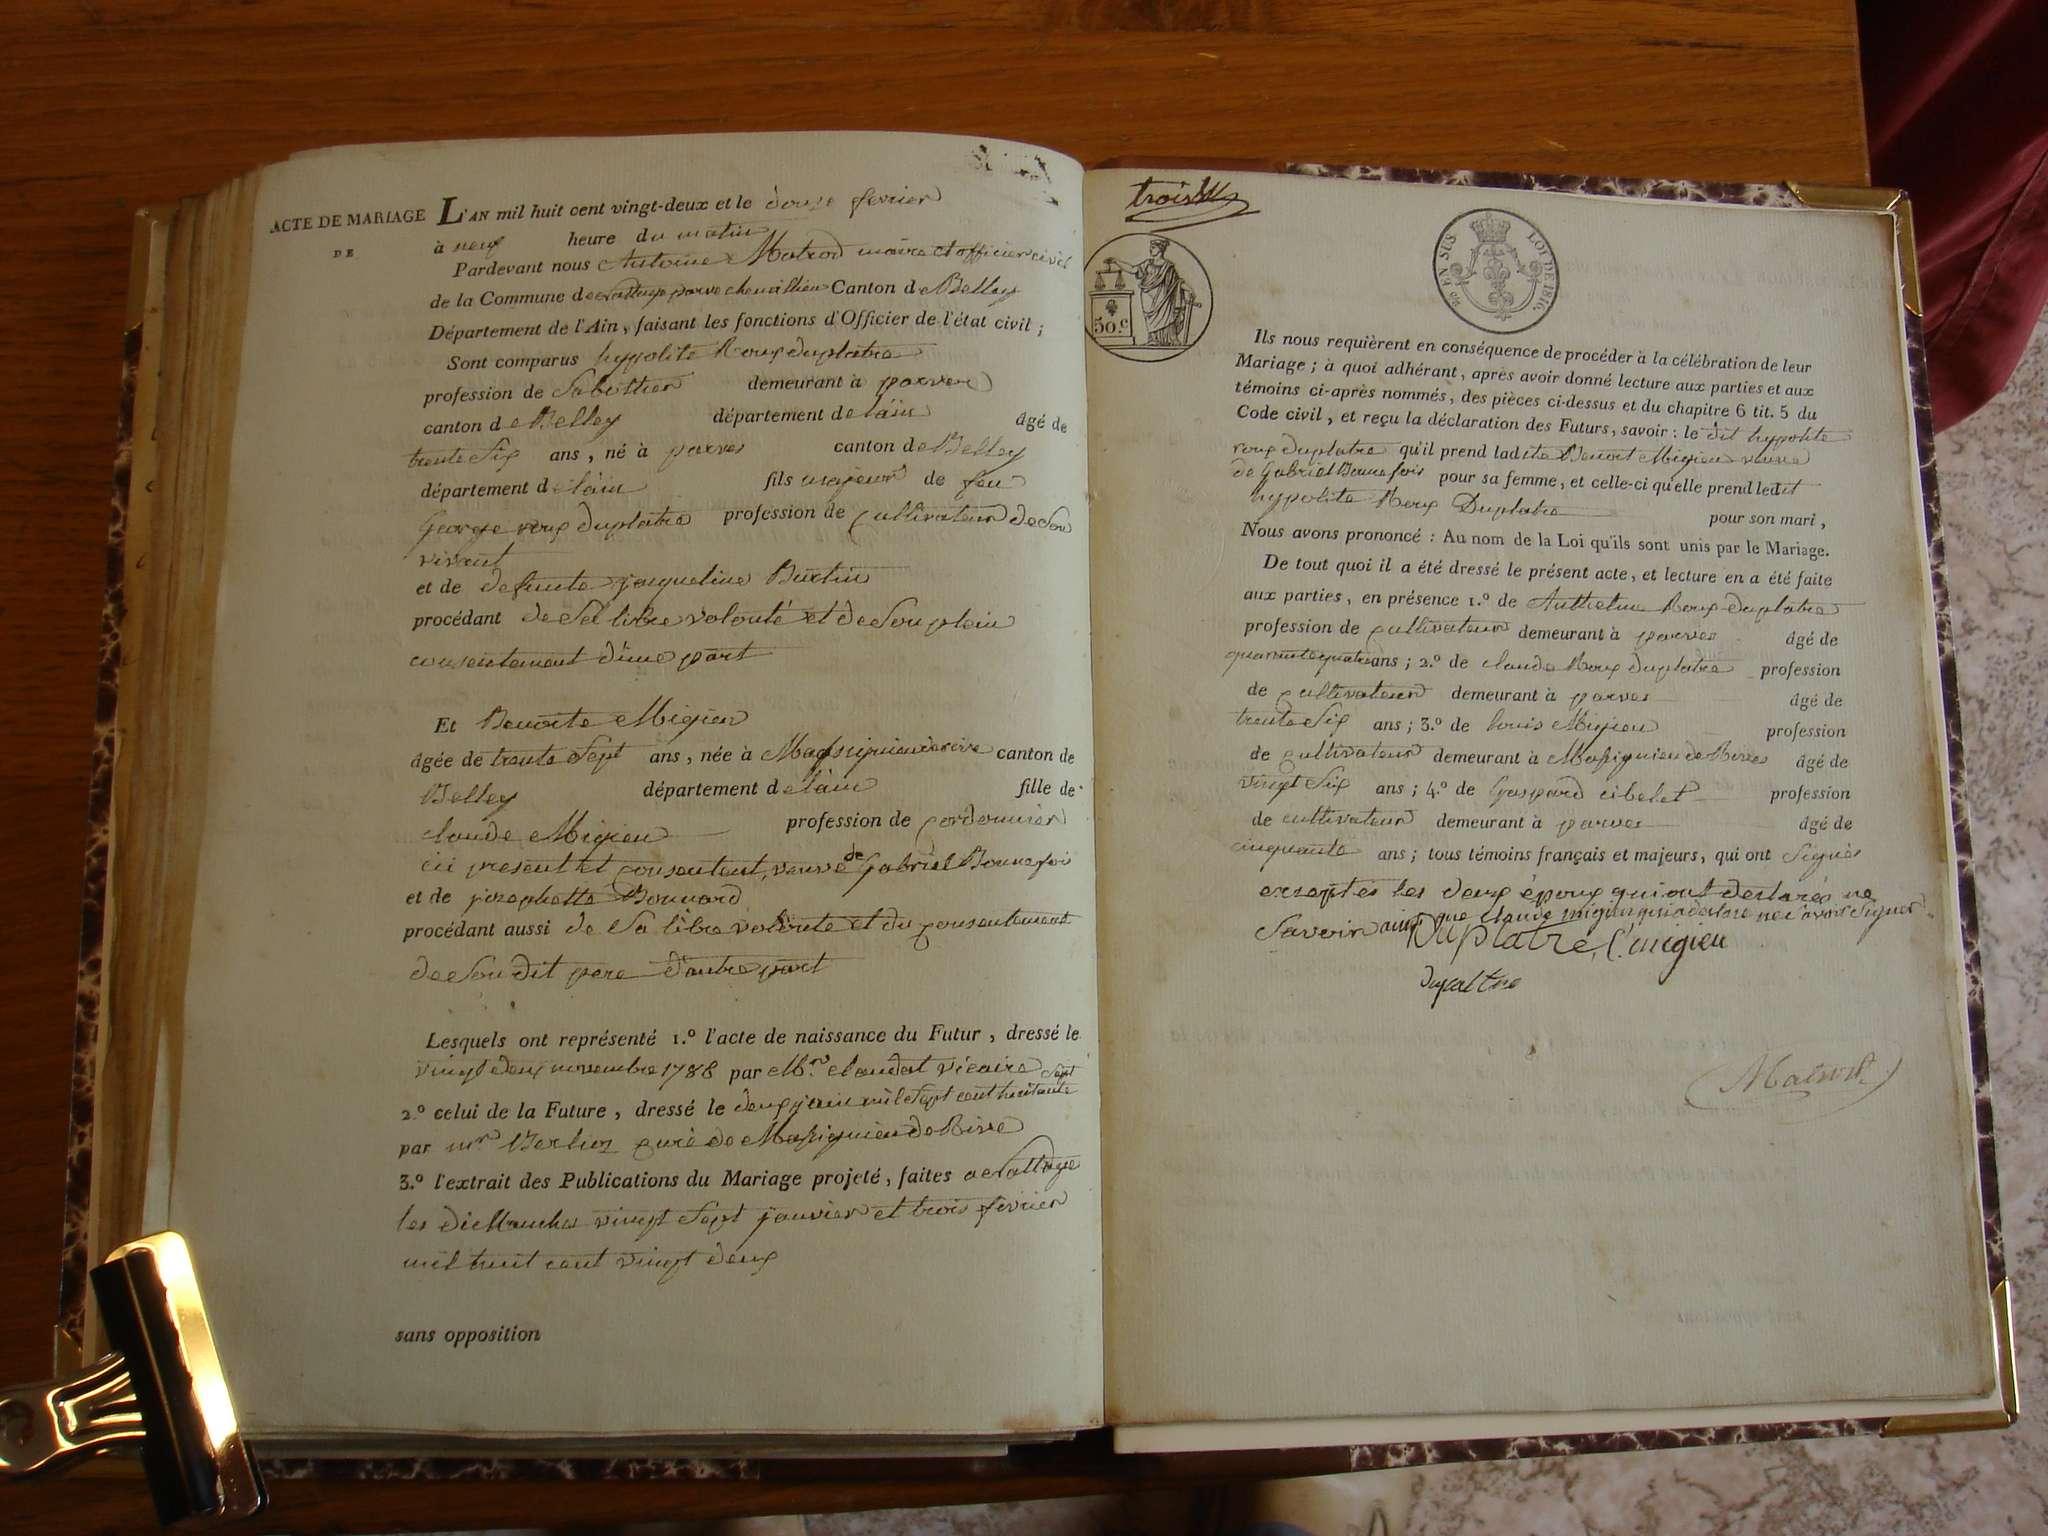 ACTE DE MARIAGE
DE
L'AN mil huit cent vingt-deux et le douze fevrier
à neuf heure du matin
Pardevant nous Antoine Matrod maire et officier civil
de la Commune de parve Canton de Belley
Département de l'Ain, faisant les fonctions d'Officier de l'état civil ;
Sont comparus hypolite Roux duplatre
profession de Sabottier demeurant à parves
canton de Belley département de lain âgé de
trente Six ans, né à parves canton de Belley
département de lain fils majeur de feu
George roux duplatre profession de Cultivateur de Son
vivant
et de defunte jacqueline Burtin
procédant de Sa libre volonté et de Son plein
consentement d'une part
Et Benoite Migieu
âgée de trente Sept ans, née à canton de
Belley département de lain fille de
claude Migieu profession de Cordonnier
ici present et Consentent, veuve de Gabriel Bonnefois
et de jozephette Bonnard
procédant aussi de Sa libre volonte et du Consentement
de Son dit pere d'autre part
Lesquels ont représenté 1.º l'acte de naissance du Futur, dressé le
vingt deux novembre 1788 par Mr. claudat vicaire
2.º celui de la Future, dressé le deux juin mil Sept cent huitante Sept
par mr Berlioz Curé de Massignieu de Rive
3.º l'extrait des Publications du Mariage projeté, faites
les diMauches vingt Sept janvier et trois fevrier
mil huit cent vingt deux
sans opposition
trois
50.c
LOI DE 1816.
Ils nous requièrent en conséquence de procéder à la célébration de leur
Mariage ; à quoi adhérant, après avoir donné lecture aux parties et aux
témoins ci-après nommés, des pièces ci-dessus et du chapitre 6 tit. 5 du
Code civil, et reçu la déclaration des Futurs, savoir : le dit hypolite
roux duplatre qu'il prend ladite Benoit Migieu veuve
de Gabriel Bonnefois pour sa femme, et celle-ci qu'elle prend ledit
hypolite Roux Duplatre pour son mari,
Nous avons prononcé : Au nom de la Loi qu'ils sont unis par le Mariage.
De tout quoi il a été dressé le présent acte, et lecture en a été faite
aux parties, en présence 1.º de Anthelme Roux duplatre
profession de Cultivateur demeurant à parves âgé de
quarante quatre ans ; 2.º de claude Roux duplatre profession
de Cultivateur demeurant à parves âgé de
trente Six ans ; 3.º de louis Migieu profession
de Cultivateur demeurant à Massignieu de Rives âgé de
vingt Six ans ; 4.º de Gaspard cibelet profession
de cultivateur demeurant à parves âgé de
cinquante ans ; tous témoins français et majeurs, qui ont Signés
exceptés les deux époux qui ont declarés ne
Savoir ainsi que Claude migieu qui a declare ne Savoir Signer
Duplatre L. migieu
dupaltre
Matrod